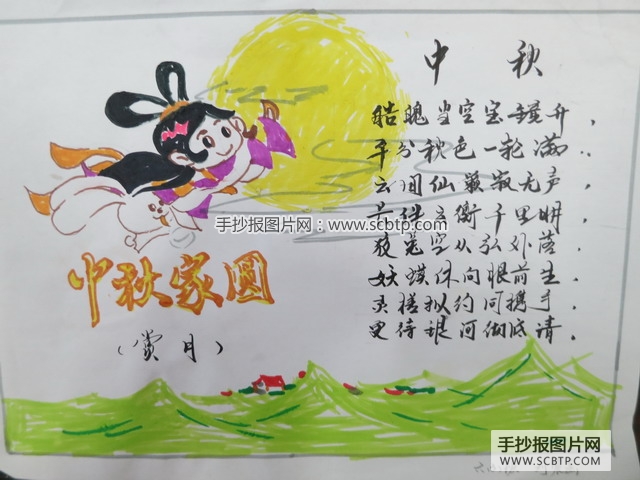 中秋
皓魄当空宝镜升，
平分秋色一轮满，
云间仙籁寂无声，
长伴云衢千里明，
狡兔空从弦外落，
妖蟆休向眼前生，
灵槎拟约同携手，
更待银河彻底请，
手抄报图片网：www.scbtp.com
中秋家圆
(赏月)
手抄报图片网
WWW.SCBTP.COM